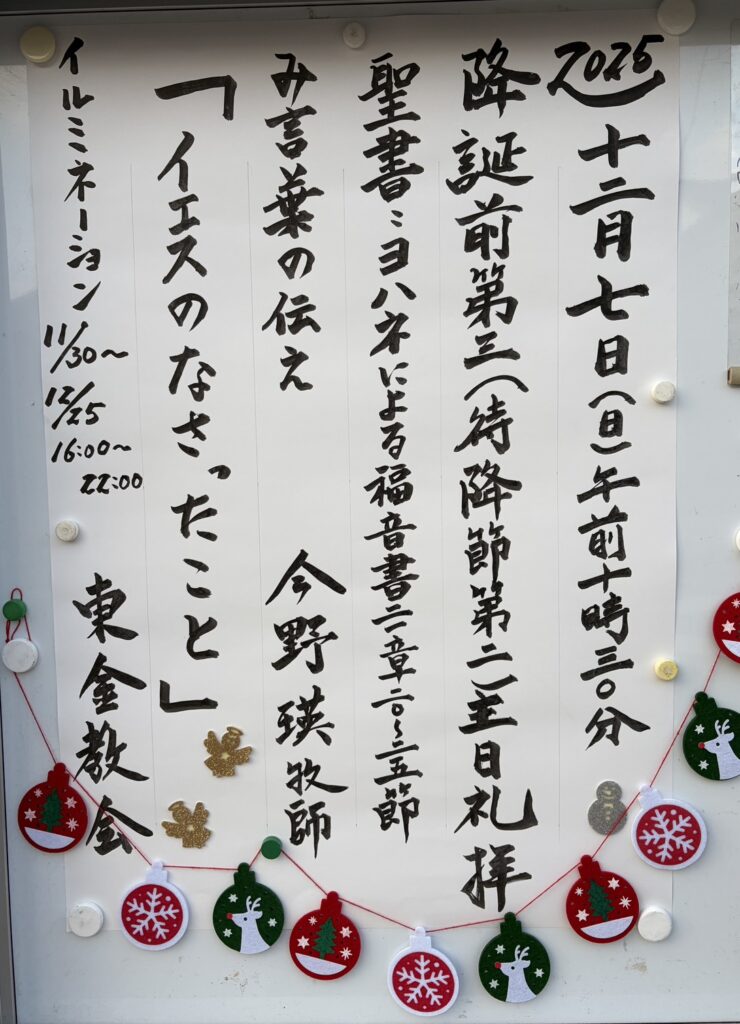 2025 十二月七日(日)午前十時三〇分
降誕前第三(待降節第二)主日礼拝
聖書:ヨハネによる福音書二一章二〇~二五節
み言葉の伝え 今野瑛牧師
「イエスのなさったこと」
イルミネーション 11/30~
12/25
16:00~
22:00
東金教会